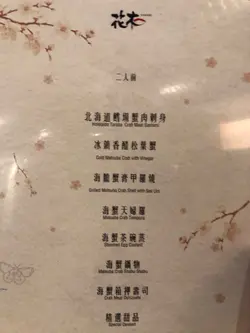 花木
二人前
北海道鱈場蟹肉刺身
Hokkaido Taraba Crab Meat Sashimi
冰鎮香醋松葉蟹
Cold Matsuba Crab with Vinegar
海膽蟹膏甲羅燒
Grilled Matsuba Crab Shell with Sea Urchin
海蟹天婦羅
Matsuba Crab Tempura
海蟹茶碗蒸
Steamed Egg Custard
海蟹鍋物
Matsuba Crab Shabu Shabu
海蟹箱押壽司
Crab Meat Oshizushi
精選甜品
Special Dessert